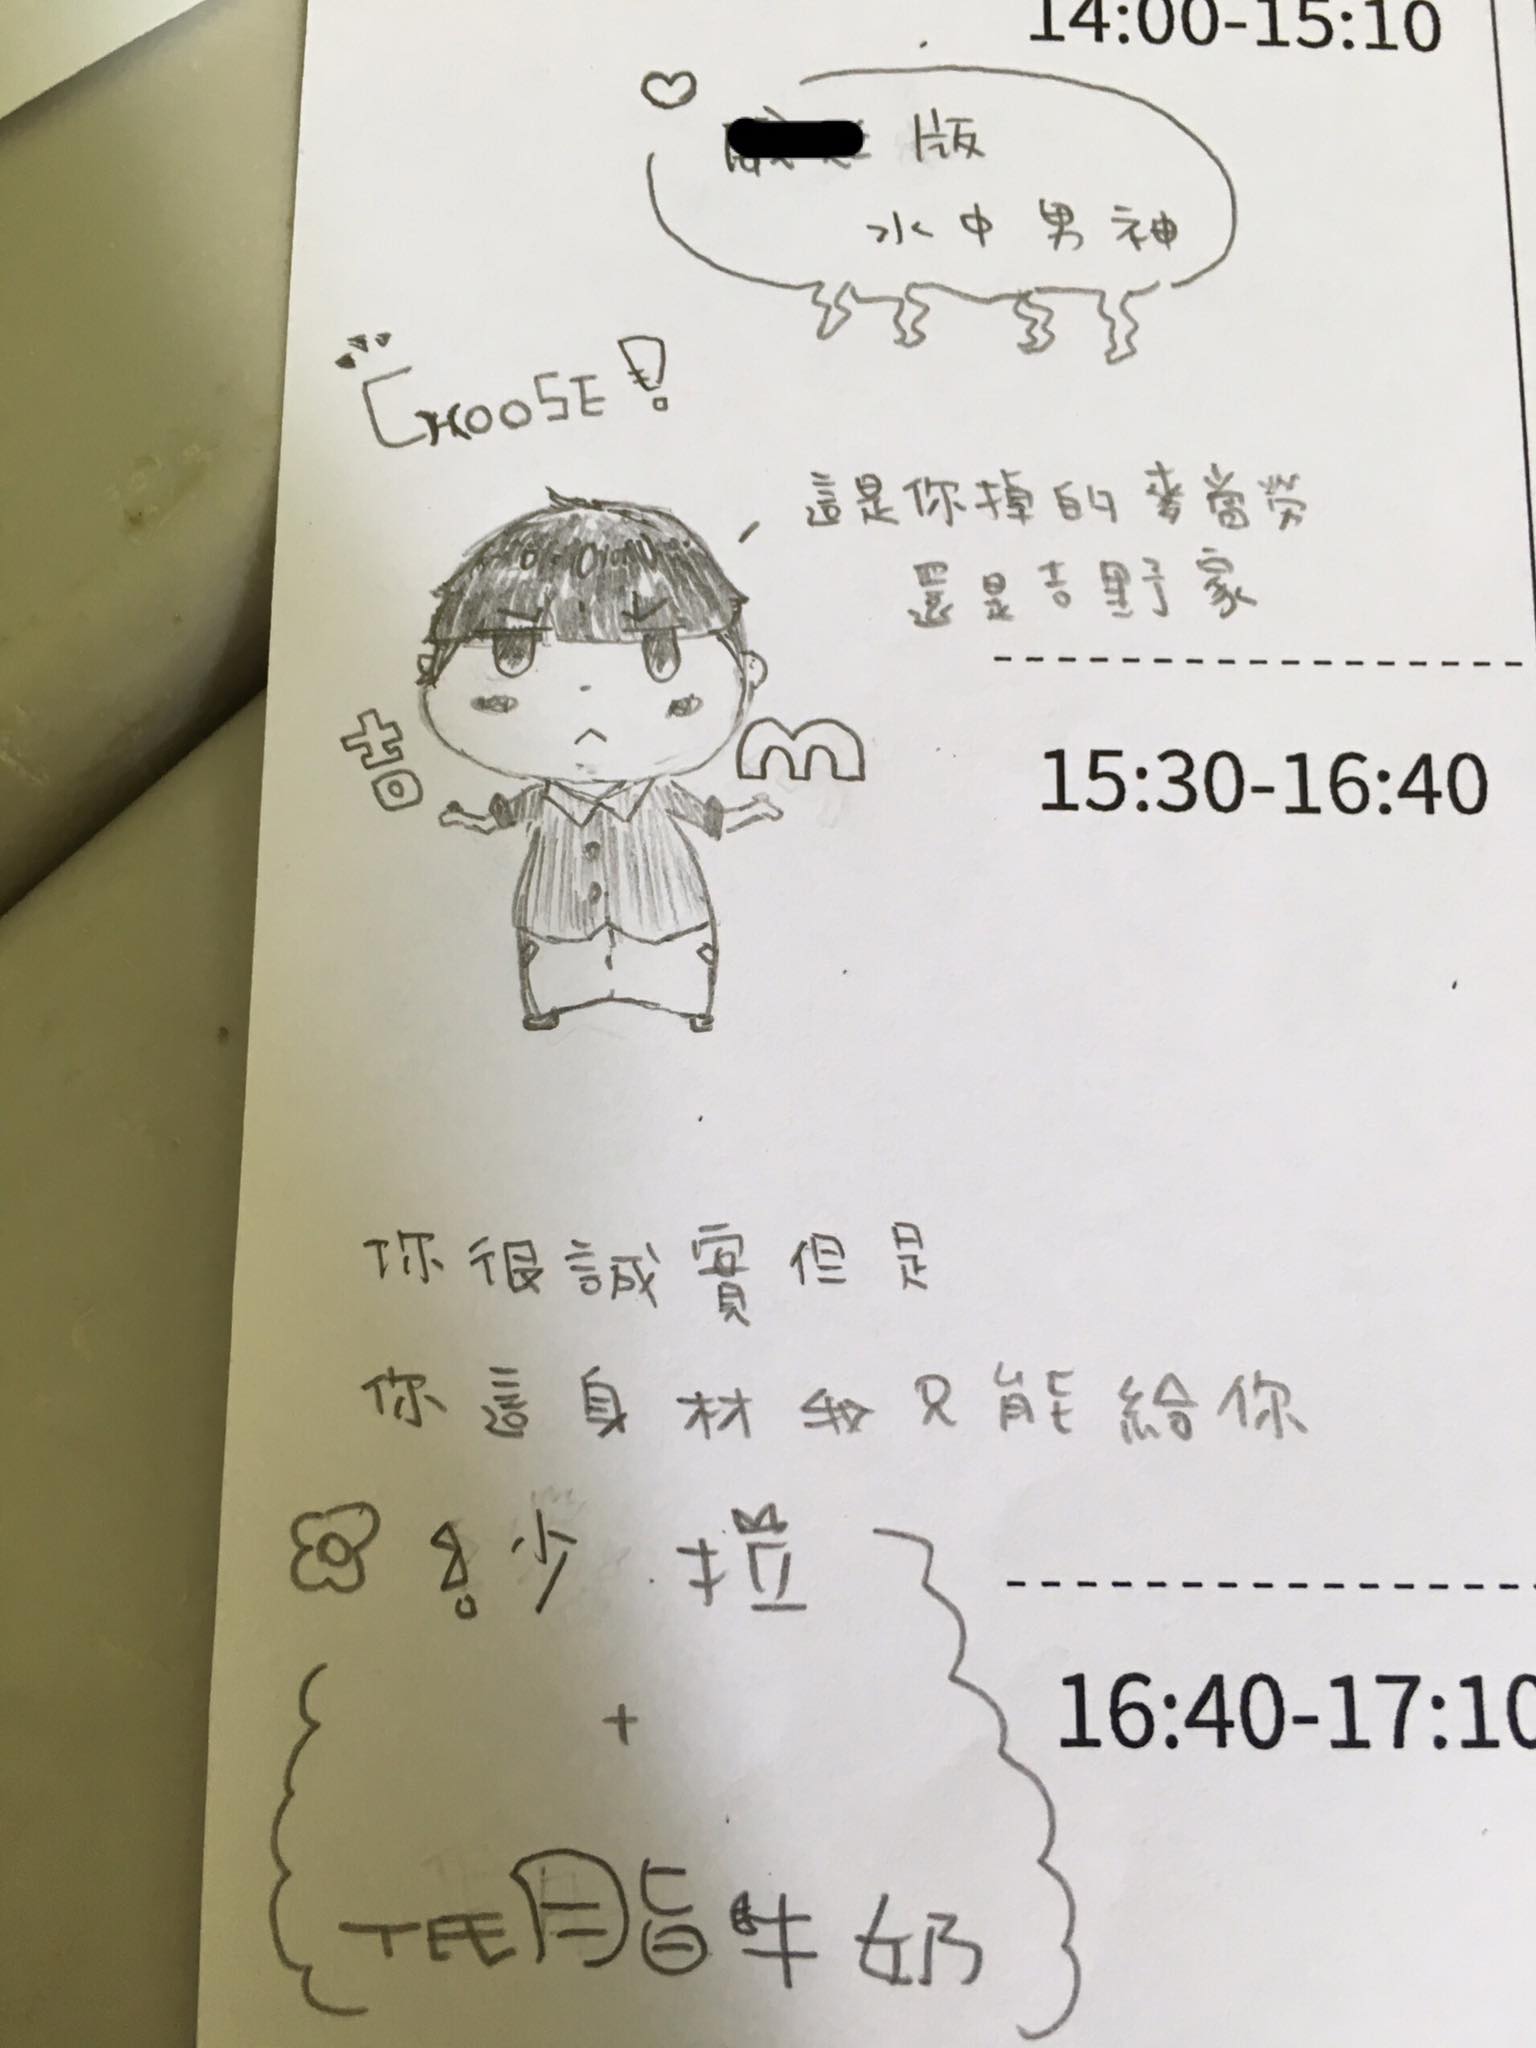 14:00-15:10
版
水中男神
CHOOSE!
這是你掉的麥當勞
還是吉野家
吉
m
15:30-16:40
你很誠實但是
你這身材我只能給你
沙拉
16:40-17:10
+
TEE脂牛奶